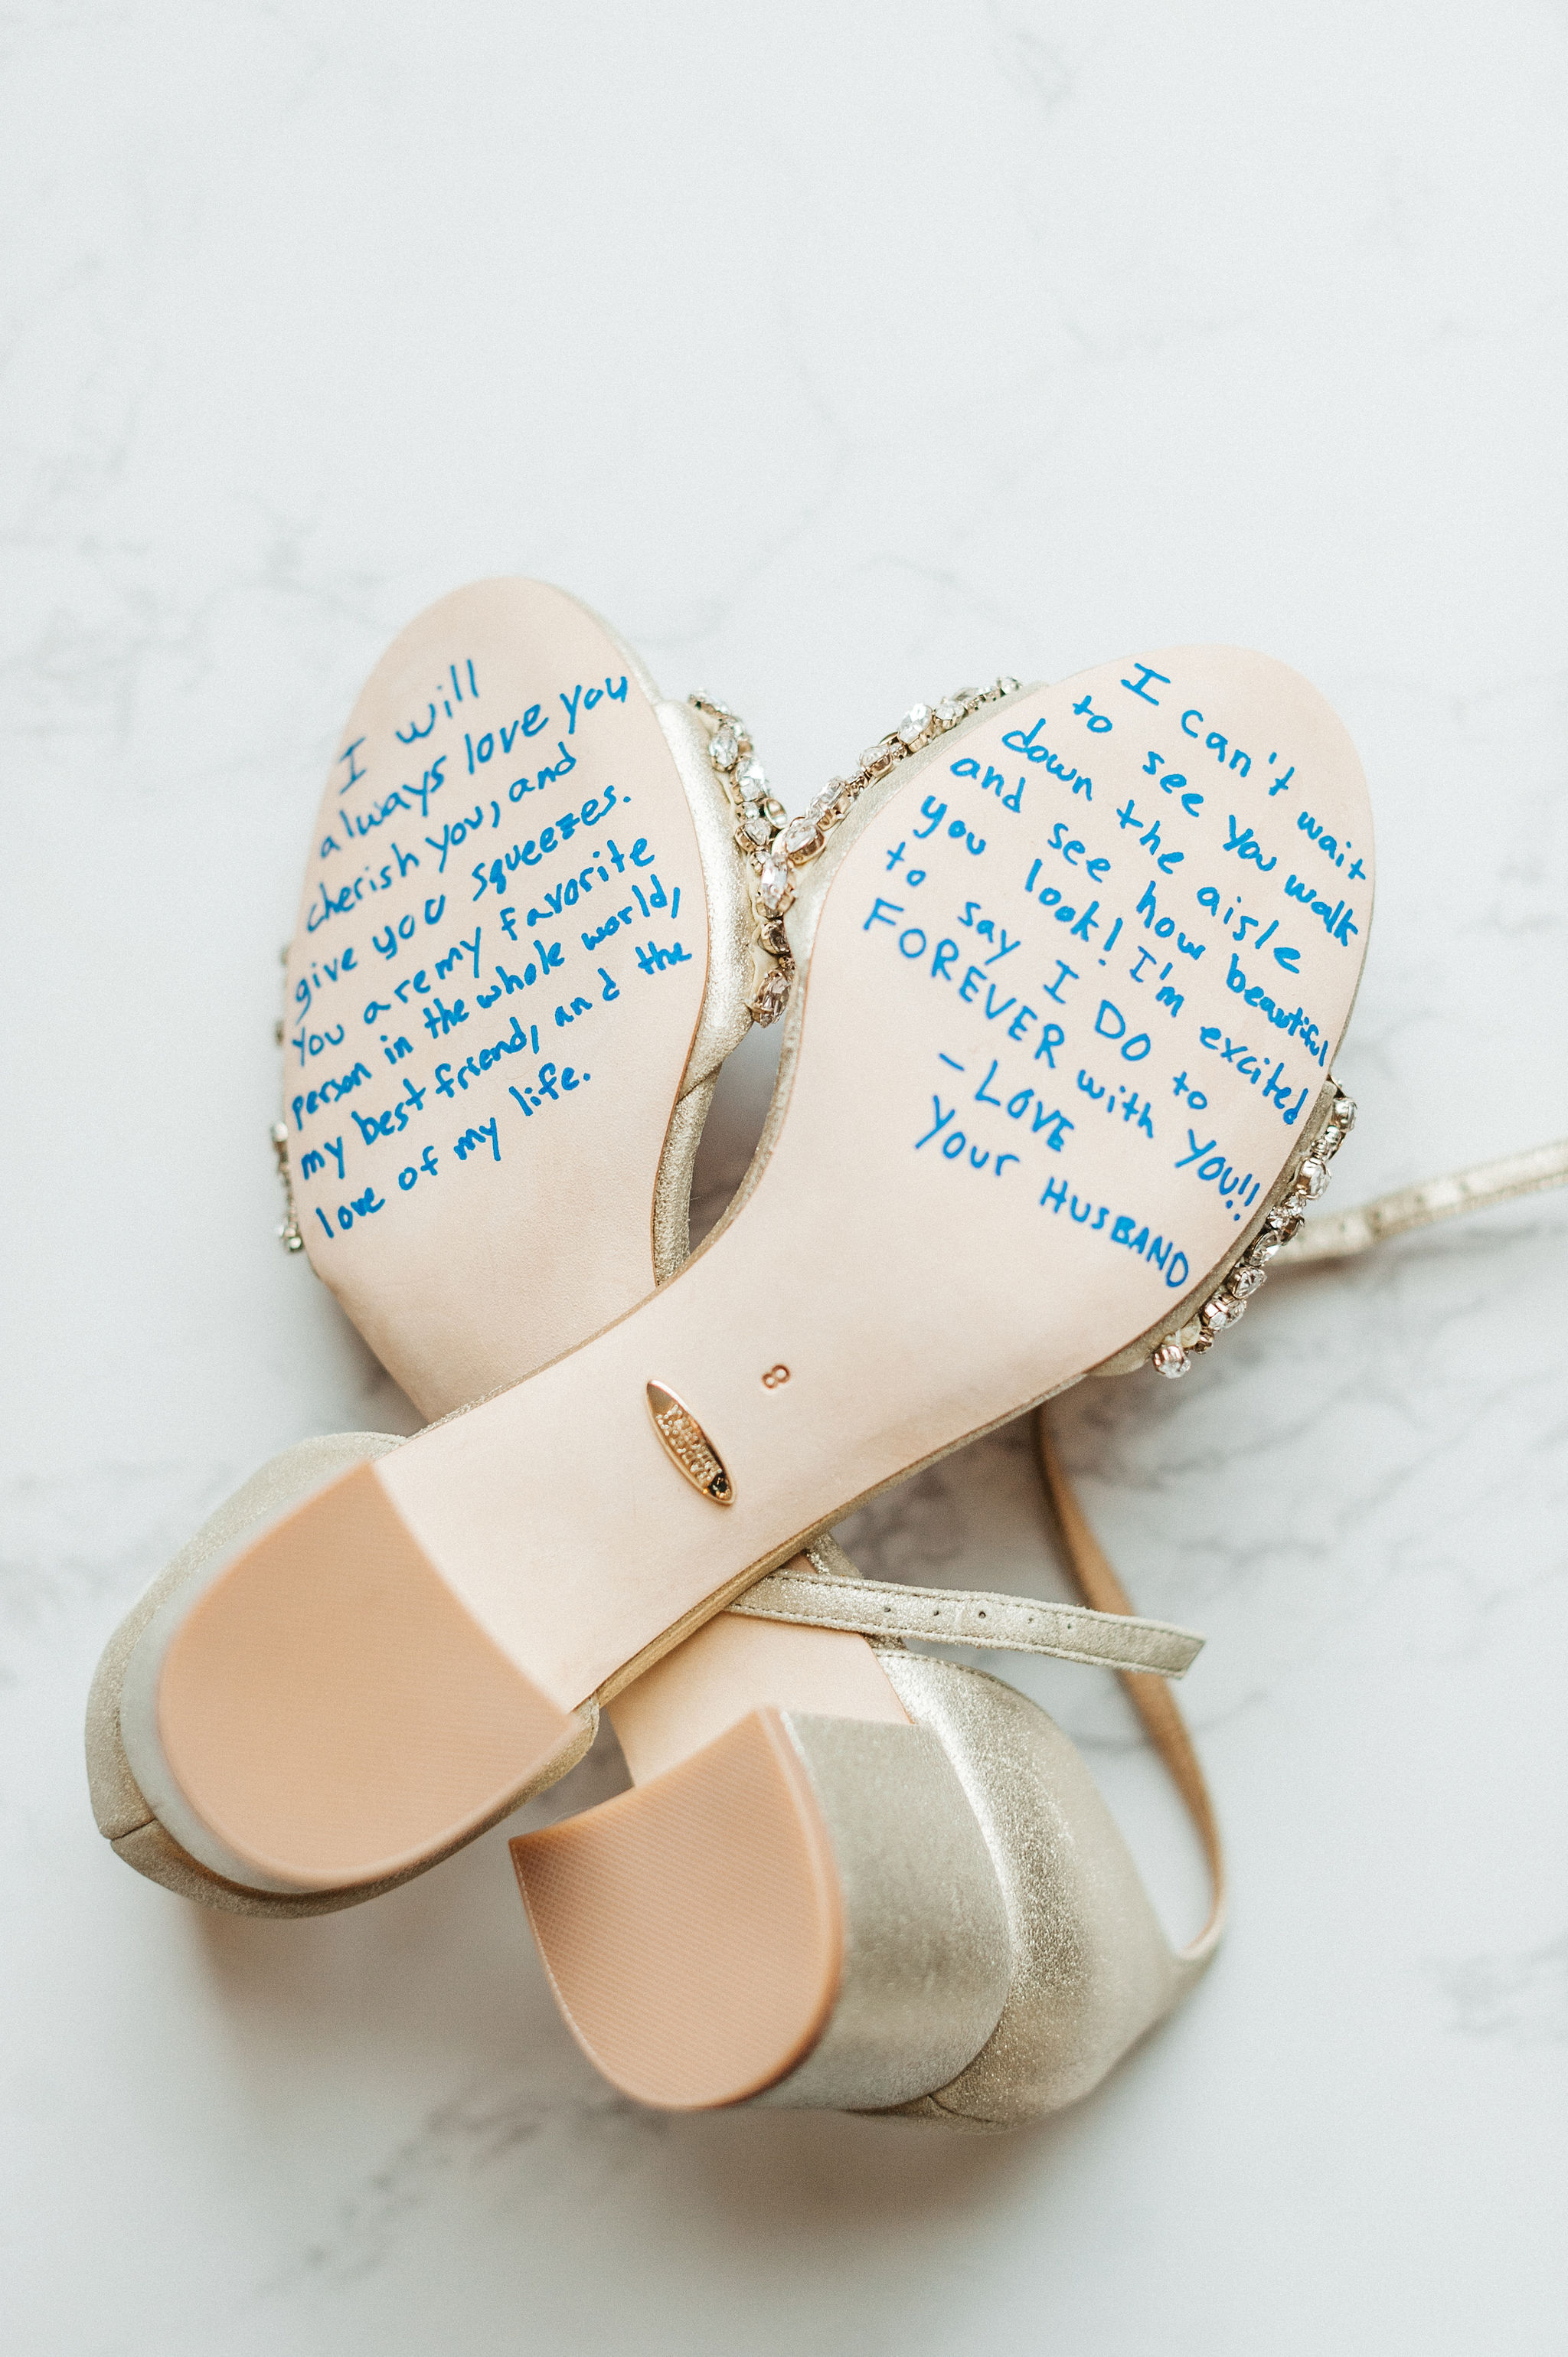 I will
always love you
cherish you, and
give you squeezes.
You are my favorite
person in the whole world,
my best friend, and the
love of my life.
I can't wait
to see you walk
down the aisle
and see how beautiful
you look! I'm excited
to say I DO to
FOREVER with YOU!!
- LOVE
Your HUSBAND
8